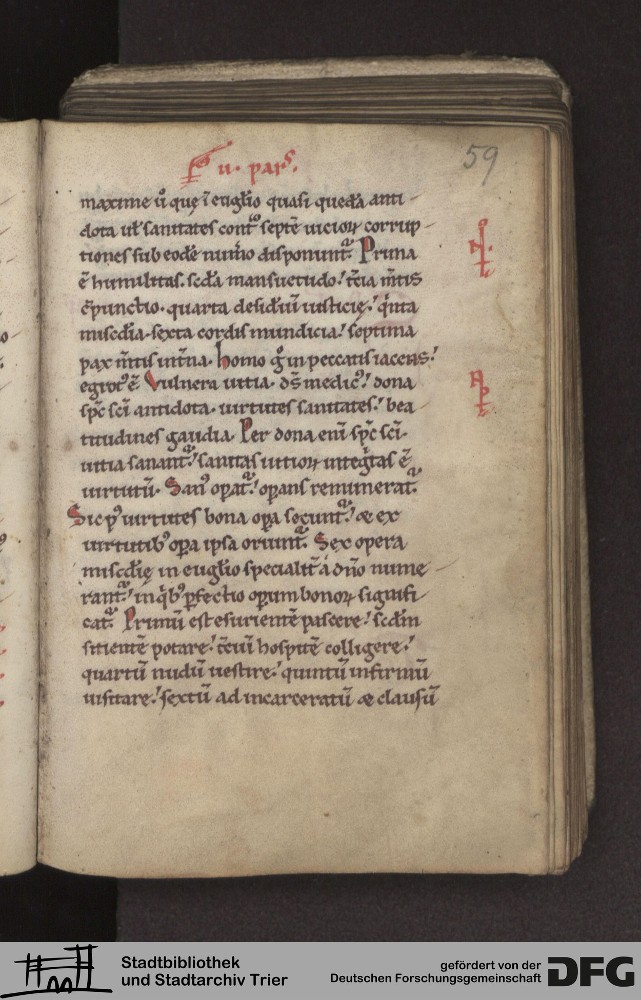 ii. pars.
59
maxime u̾ quę ĩ eugłio quasi quedã anti-
dota uł sanitates cont̾ septẽ uicioꝝ corrup-
tiones sub eodẽ num̾o disponunt᷑. Prima
ẽ humilitas. scđa mansuetudo. t̾cia m̃tis
c̃punctio. quarta desideriũ iusticię. qͥnta
mis̃cdia. sexta cordis mundicia. septima
pax m̃tis int̾na. Homo g̊ in peccatis iacens.
egrot᷒ ẽ. Vulnera uitia. ds̃ medic᷒. dona
sp̃c sc̃i antidota. uirtutes sanitates. bea-
titudines gaudia. Per dona eni᷑ sp̃c sc̃i.
uitia sanant᷑. sanitas uitioꝝ integͥtas ẽ
uirtutũ. San᷒ oꝑat᷑. oꝑans remunerat᷑.
Sic p᷒ uirtutes bona oꝑa secunt᷑. & ex
uirtutib᷒ oꝑa ipsa oriunt᷑. Sex opera
mis̃cdię in eugłio specialit̾ a dño nume-
rant᷑. in qͥb᷒ ꝑfectio oꝑum bonoꝝ signifi-
cat᷑. Primũ est esurientẽ pascere. scđm
sitientẽ potare. t̾ciũ hospitẽ colligere.
quartũ nudũ uestire. quintũ infirmũ
uisitare. sextũ ad incarceratũ & clausũ
Stadtbibliothek
und Stadtarchiv Trier
gefördert von der
Deutschen Forschungsgemeinschaft
DFG